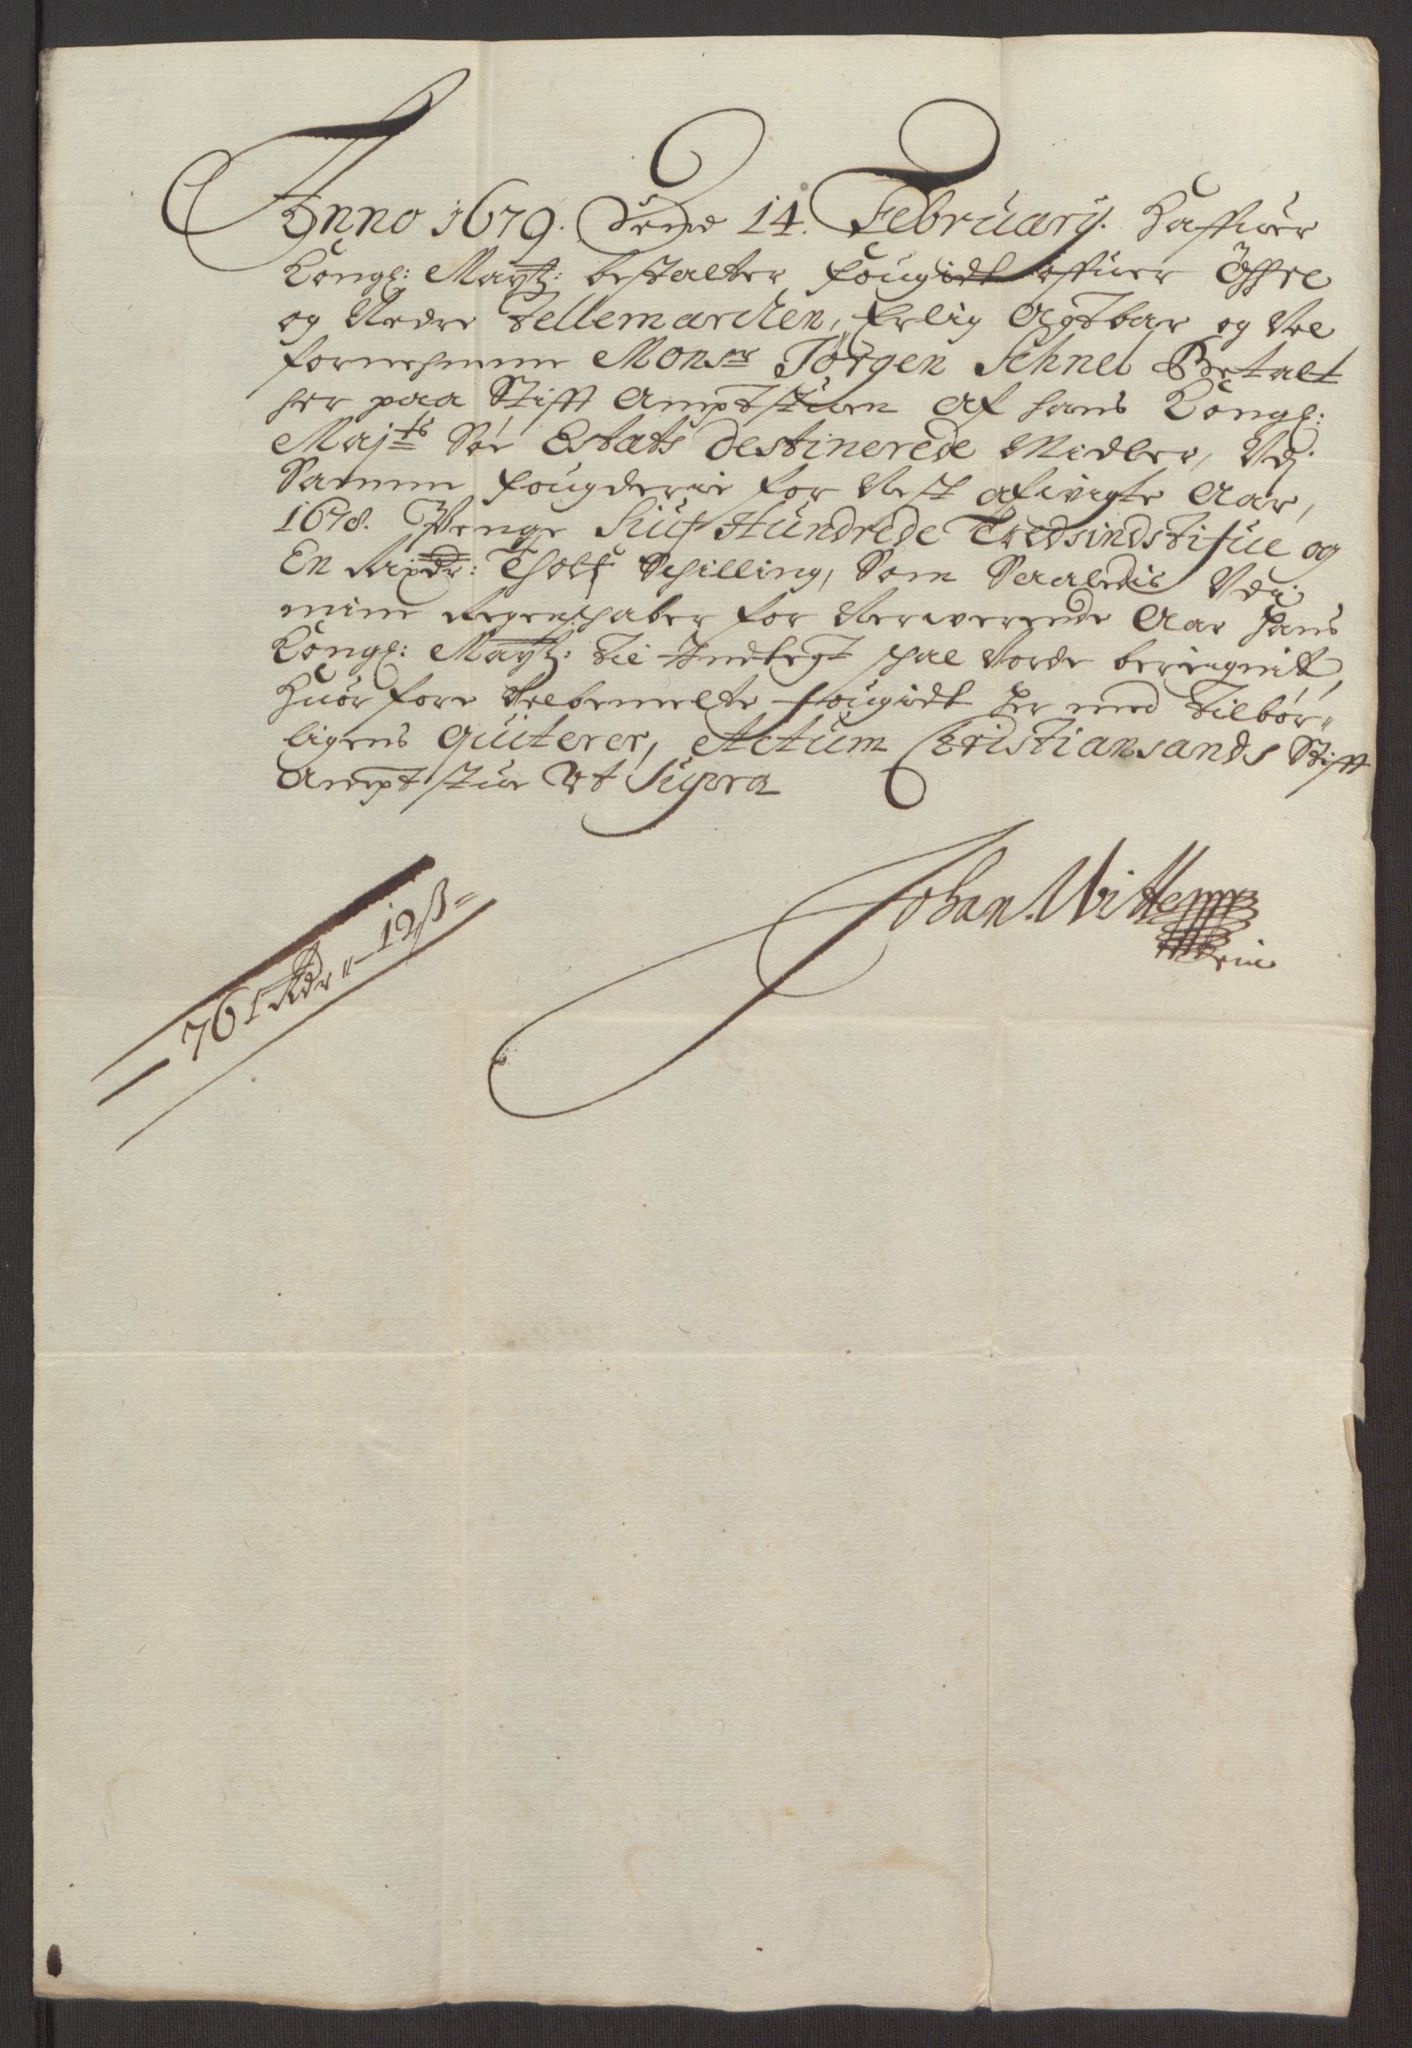 Anno 1679. Dend 14. February. Haffuer
Kongl: Maytz: bestalter fougidt offuer Öffre
og Nedre Tellemarcken, Erlig Agtbar og Vel
fornehmme Mons:r Jørgen Schnel Betalt
her paa Stifft Amptstuen af hans Kongl:
Maj:ts Søe Estats destinerede Midler, Udj
Samme fougderie for Rest afvigte Aar,
1678. Penge Siuf Hundrede Tredsindstifue og
En Rixdr: Tholf Schilling, Som Saaledis Udj
mine Regenschaber for Nerwerende Aar hans
Kongl: Maytz: til Indtegt schal vorde beregnitt,
Huorfore Velbemelte fougidt her med tilbør-
ligens quiterer, Actum Christiansands Stifft
Amptstue Ut Supra
Johan. Wittem
761 Rdr 12 ß